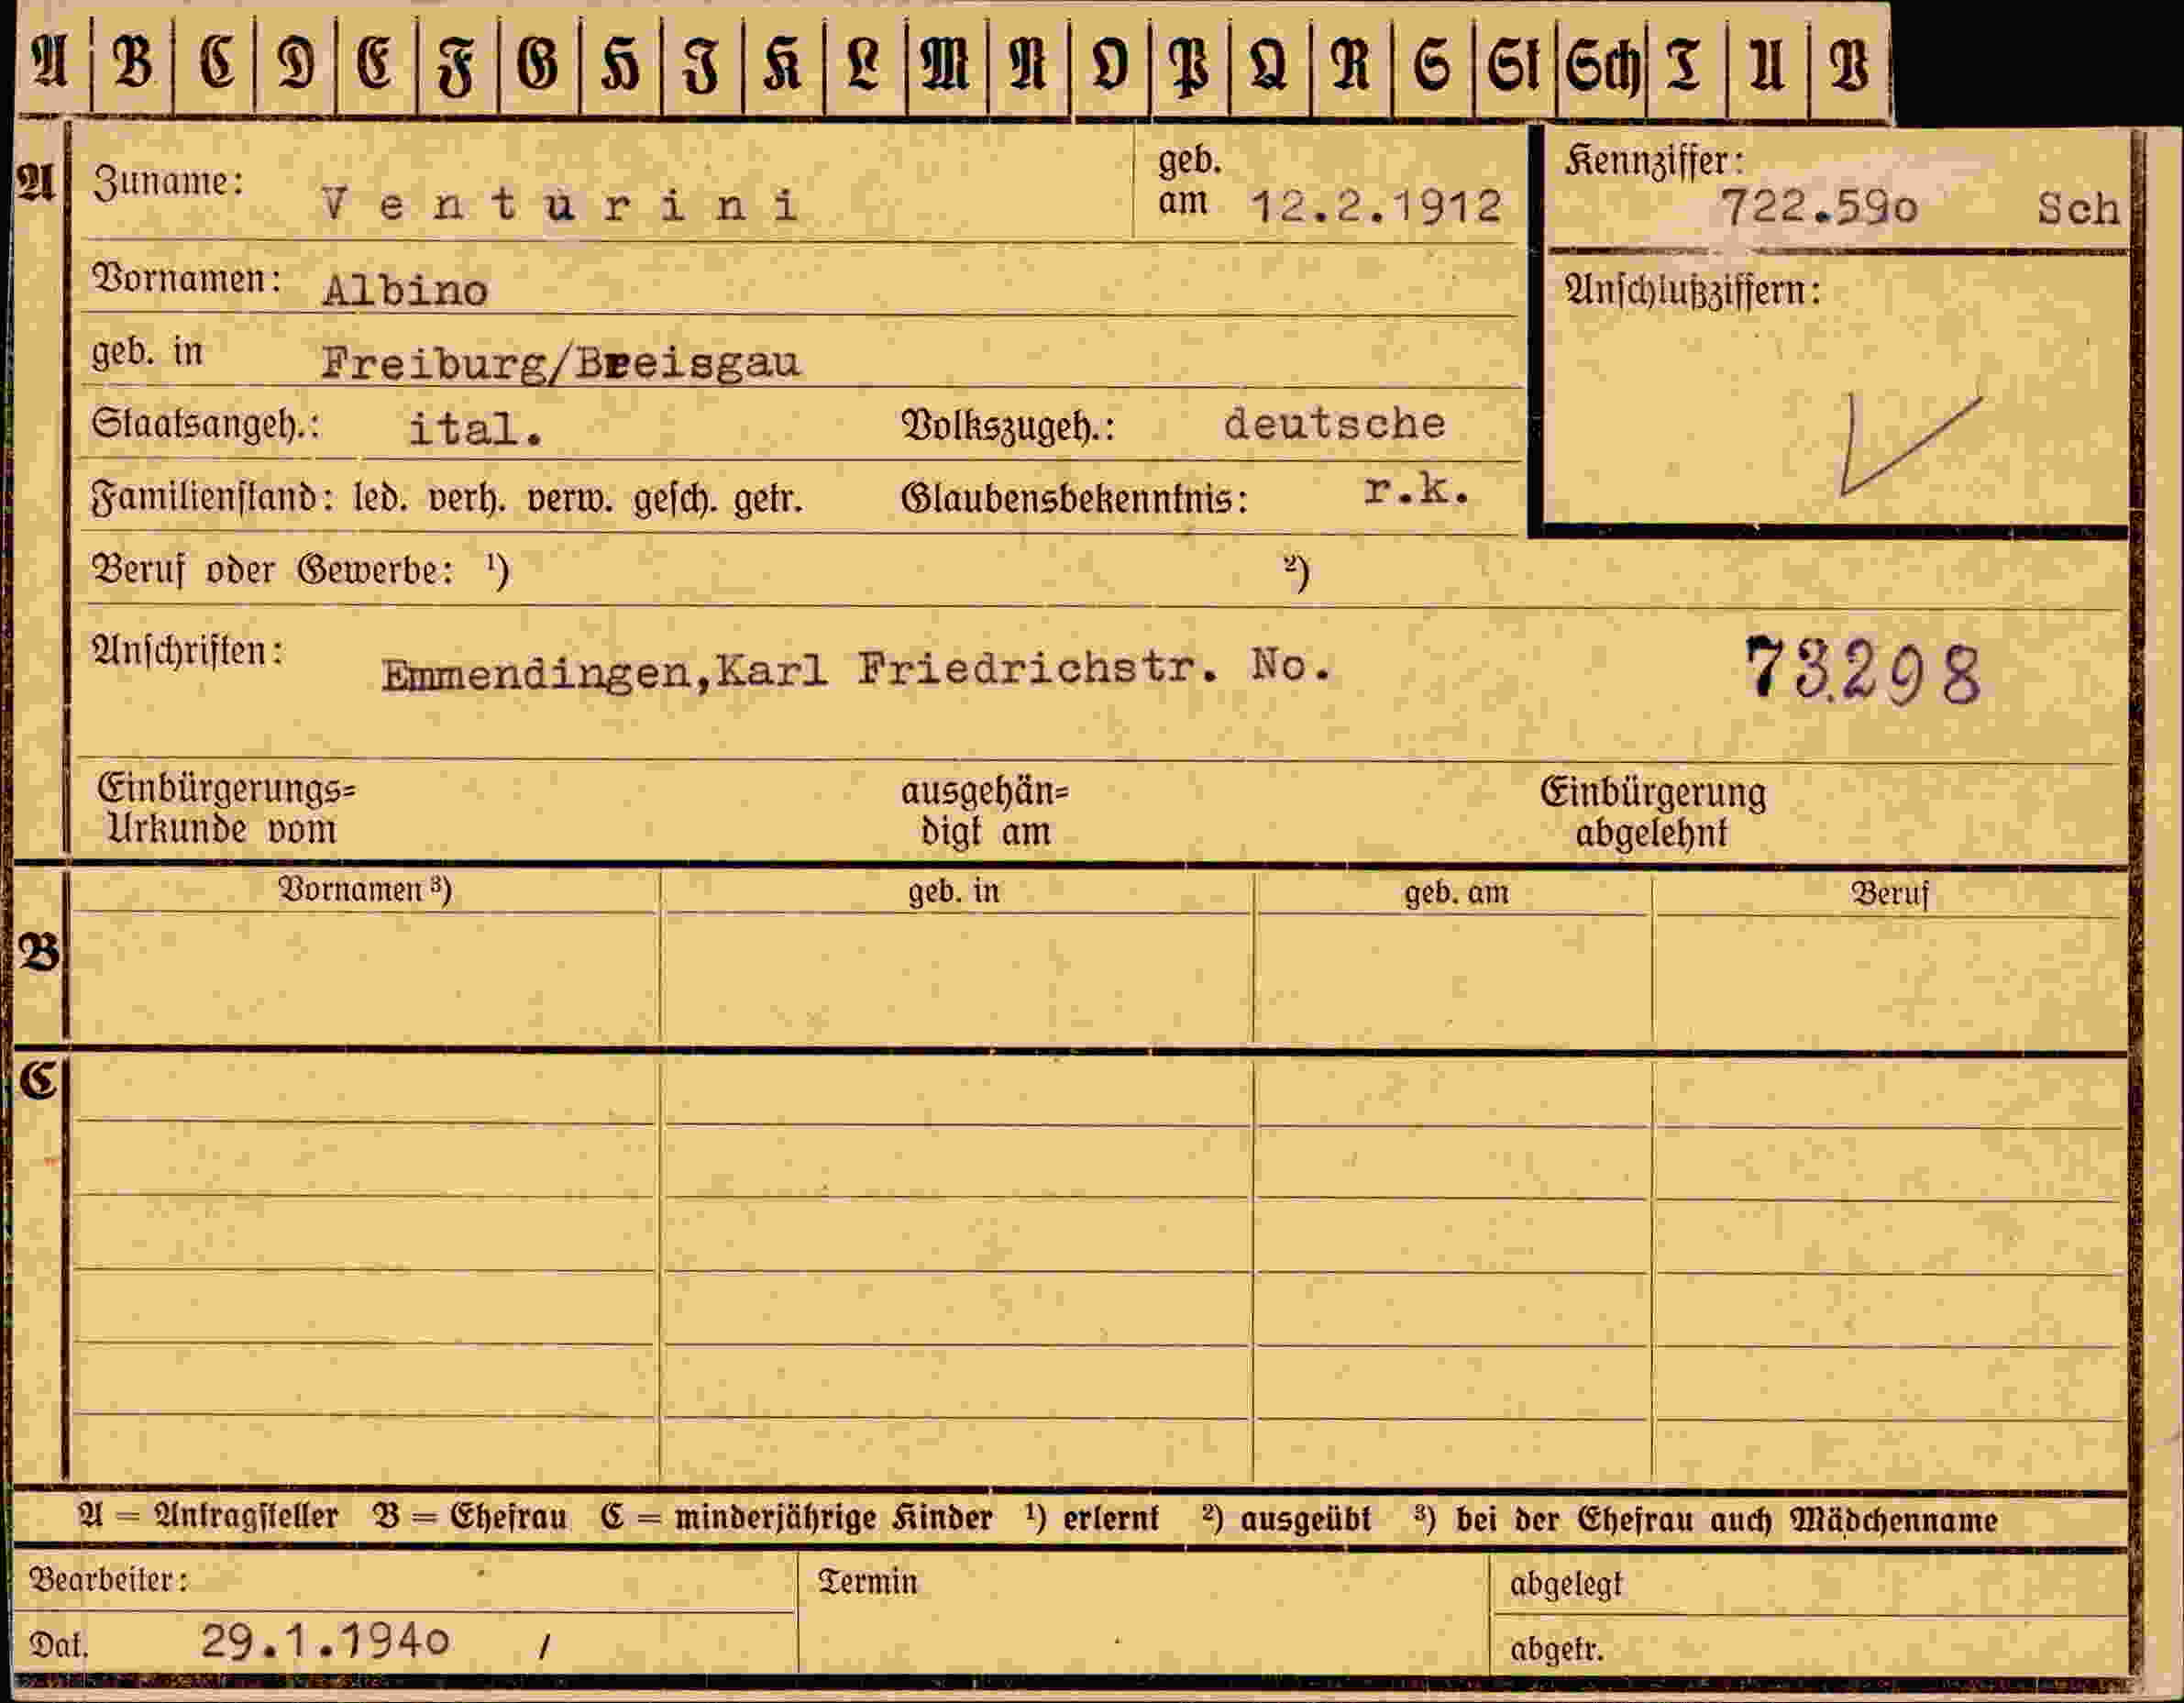 A B C D E F G H I K L M N O P Q R S St Sch T U V
A Zuname: Venturini geb. am 12.2.1912 Kennziffer: 722.59o Sch
Vornamen: Albino Anschlußziffern:
geb. in Freiburg/Breisgau
Staatsangeh.: ital. Volkszugeh.: deutsche
Familienstand: led. verh. verw. gesch. getr. Glaubensbekenntnis: r.k.
Beruf oder Gewerbe: ¹) ²)
Anschriften: Emmendingen,Karl Friedrichstr. No. 73298
Einbürgerungs= ausgehän= Einbürgerung
Urkunde vom digt am abgelehnt
Vornamen ³) geb. in geb. am Beruf
B
C
A = Antragsteller B = Ehefrau C = minderjährige Kinder ¹) erlernt ²) ausgeübt ³) bei der Ehefrau auch Mädchenname
Bearbeiter: Termin abgelegt
Dat. 29.1.194o / abgetr.